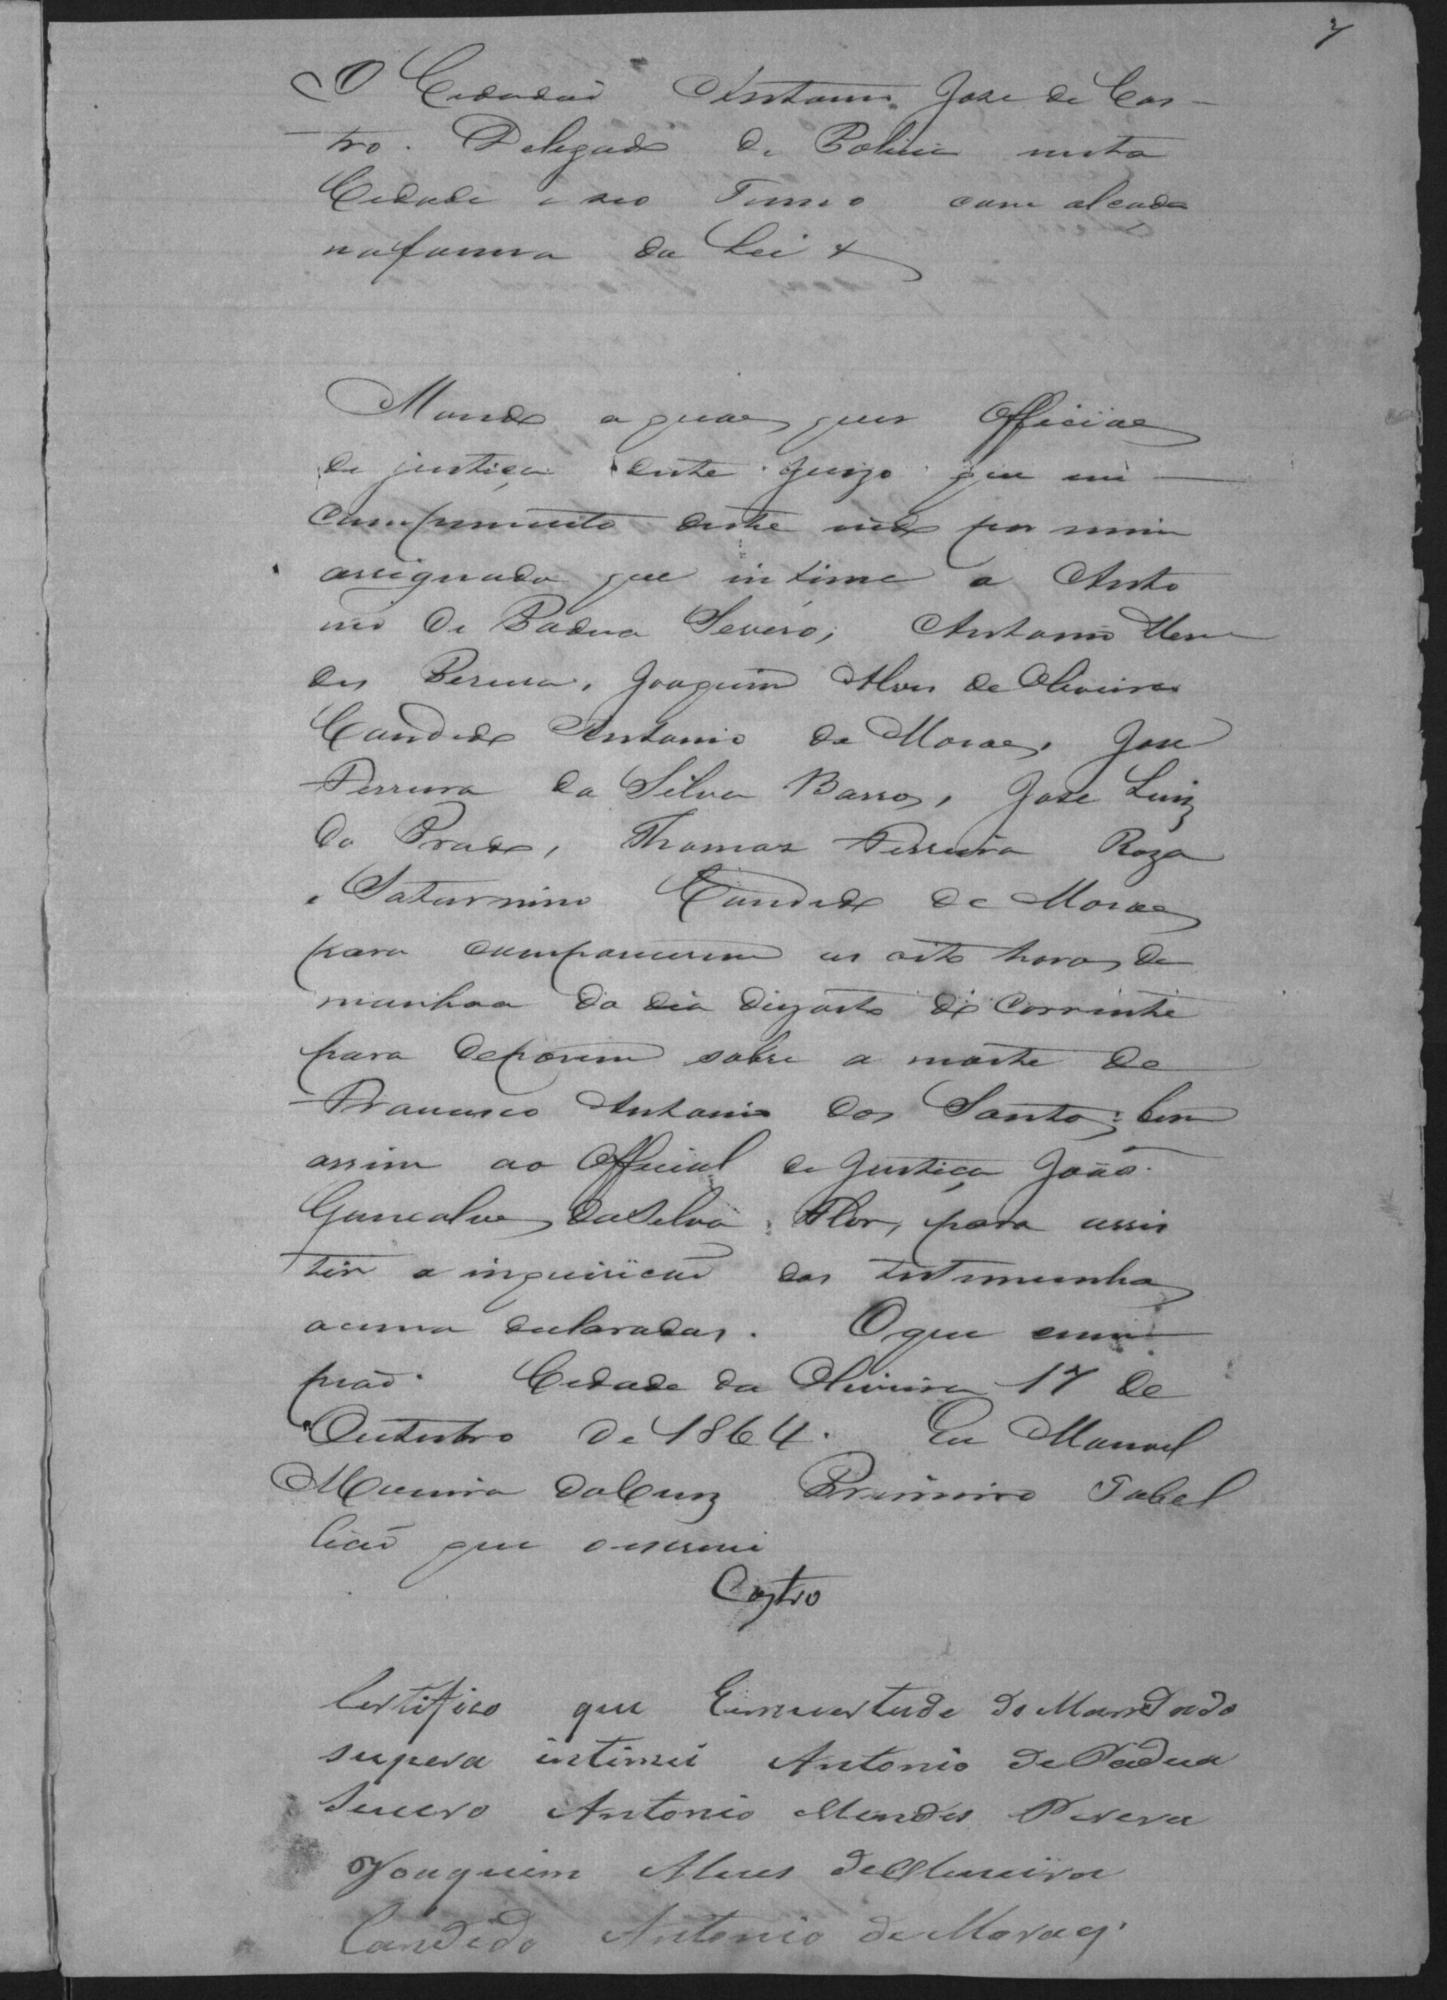 7
O Cidadaõ Antonio Jose de Cas-
tro. Delegado de Policia nesta
Cidade e seo Termo com alcada
na forma da Lei &
Mando a quaes quer Officiaes
de justiça deste Juizo que em
comprimento deste indo por mim
assignado que intime a Anto
nio de Padua Severo, Antonio Men
des Pereira, Joaquim Alves de Oliveira
Candido Antonio de Moraes, Jose
Ferreira da Silva Barros, Jose Luiz
do Prado, Thomas Ferreira Roza
e Saturnino Candido de Moraes
para comparecerem as oito horas da
manhaa do dia dezoito do corrente
para deporem sobre a morte de
Francisco Antonio dos Santos: bem
assim ao Official de Justiça Joaõ
Goncalves da Silva Flor, para assis
tir a inquiricaõ das testemunhas
acima declaradas. O que cum
praõ. Cidade da Oliveira 17 de
Outubro de 1864. Eu Manoel
Moreira da Cruz Primeiro Tabel
liaõ que o escrevi
Castro
Certifico que Emvertude do Mandado
supera intimei Antonio de Padua
Severo Antonio Mendes Perera
Joaquim Alves de Oliveira
Candido Antonio de Moraes